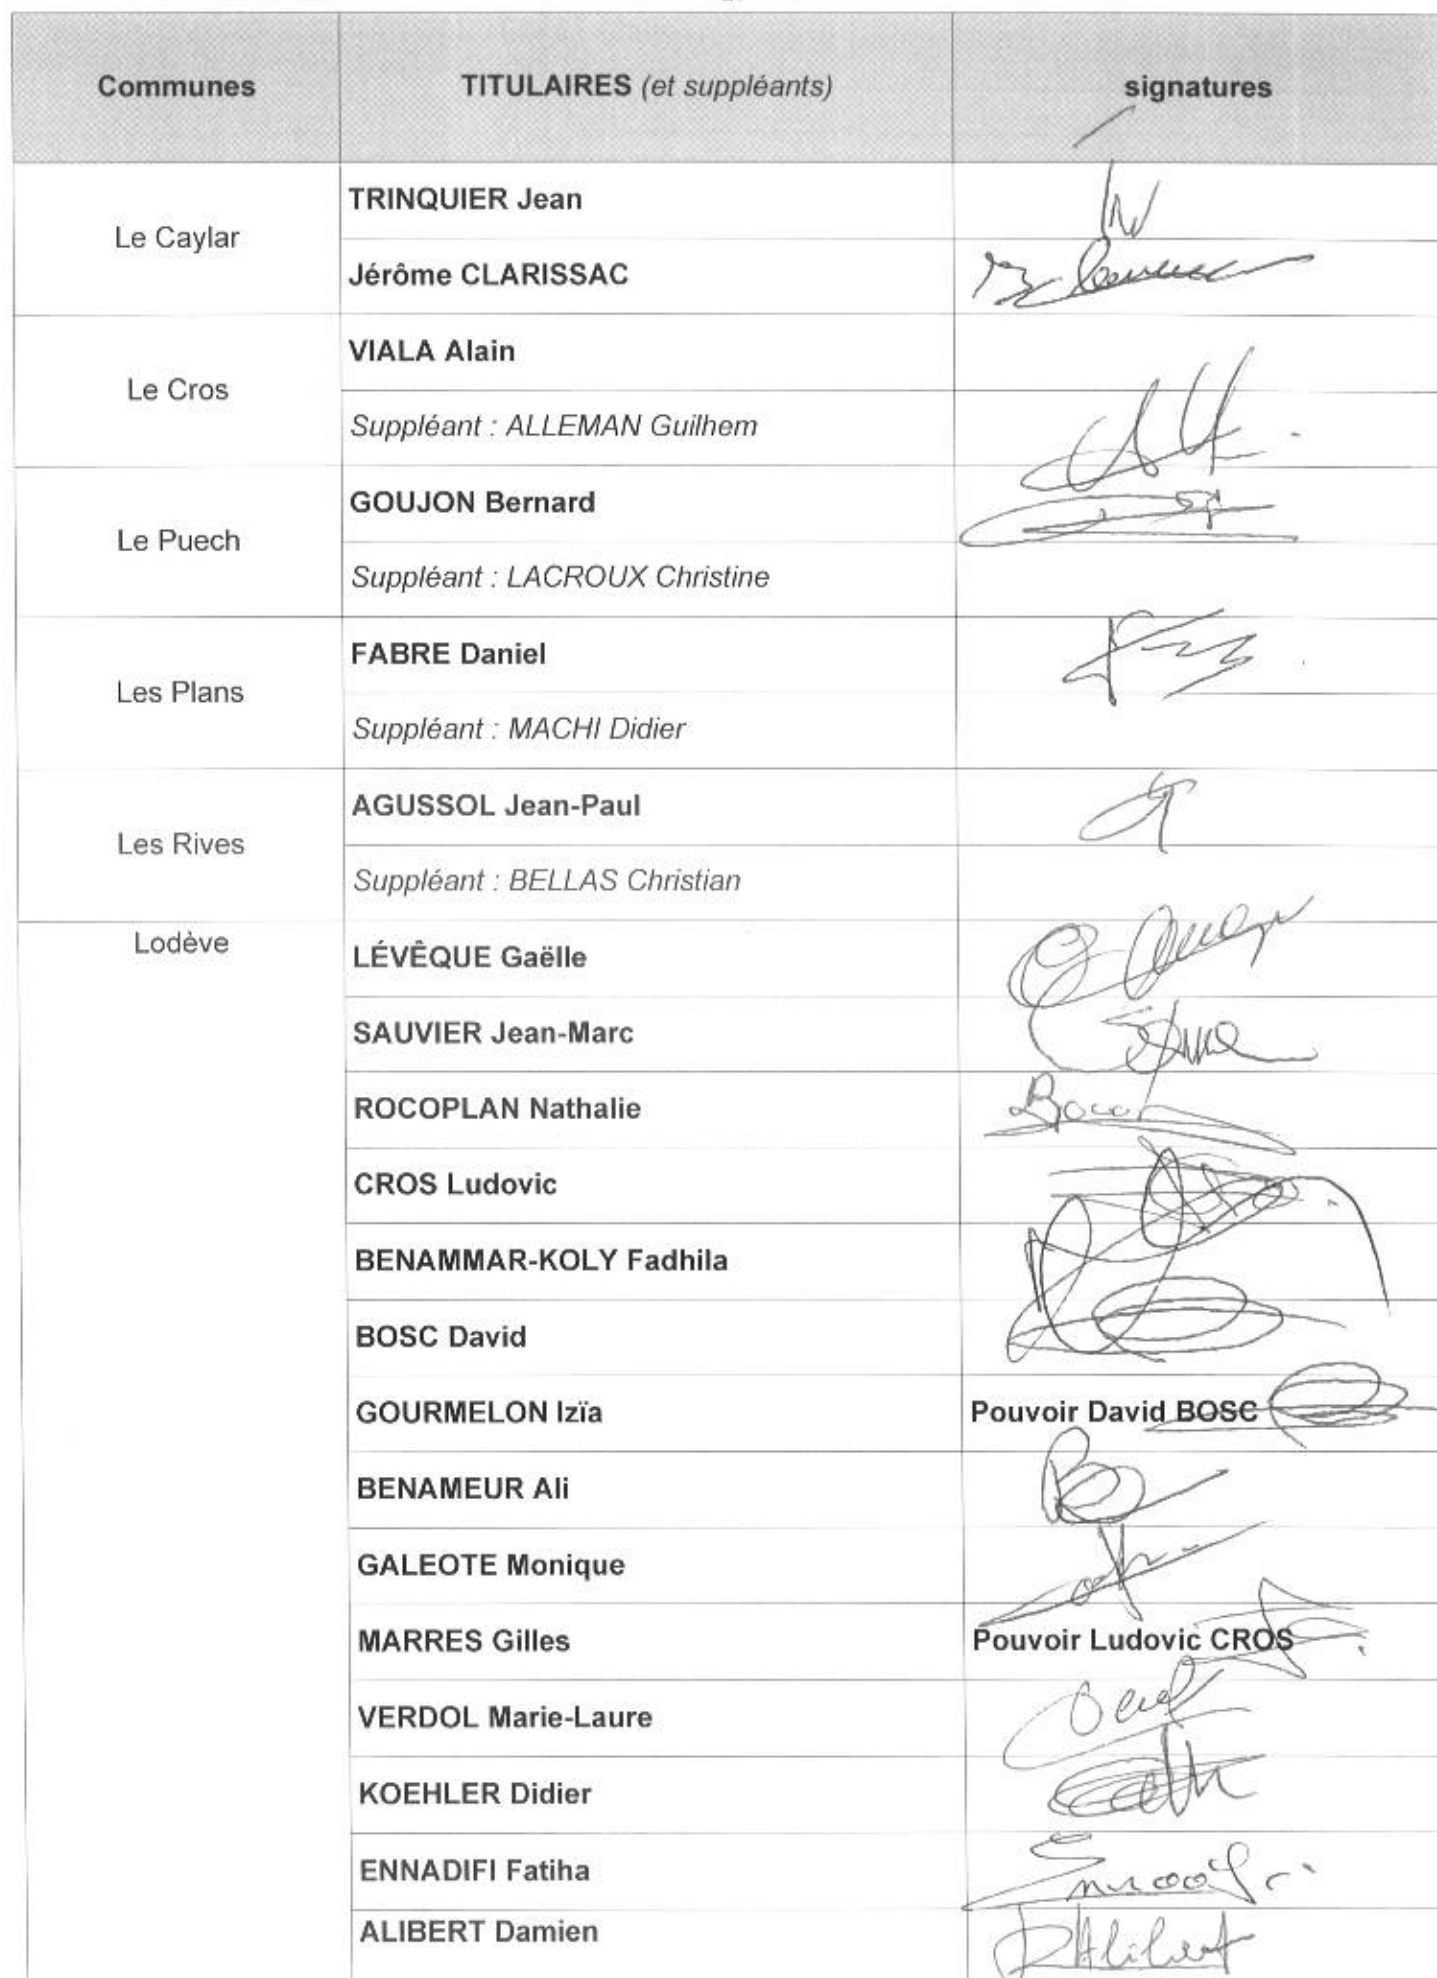 Communes TITULAIRES (et suppléants) signatures
TRINQUIER Jean
Le Caylar
Jérôme CLARISSAC
VIALA Alain
Le Cros
Suppléant : ALLEMAN Guilhem
GOUJON Bernard
Le Puech
Suppléant : LACROUX Christine
FABRE Daniel
Les Plans
Suppléant : MACHI Didier
AGUSSOL Jean-Paul
Les Rives
Suppléant : BELLAS Christian
Lodève
LÉVÊQUE Gaëlle
SAUVIER Jean-Marc
ROCOPLAN Nathalie
CROS Ludovic
BENAMMAR-KOLY Fadhila
BOSC David
GOURMELON Izïa Pouvoir David BOSC
BENAMEUR Ali
GALEOTE Monique
MARRES Gilles Pouvoir Ludovic CROS
VERDOL Marie-Laure
KOEHLER Didier
ENNADIFI Fatiha
ALIBERT Damien